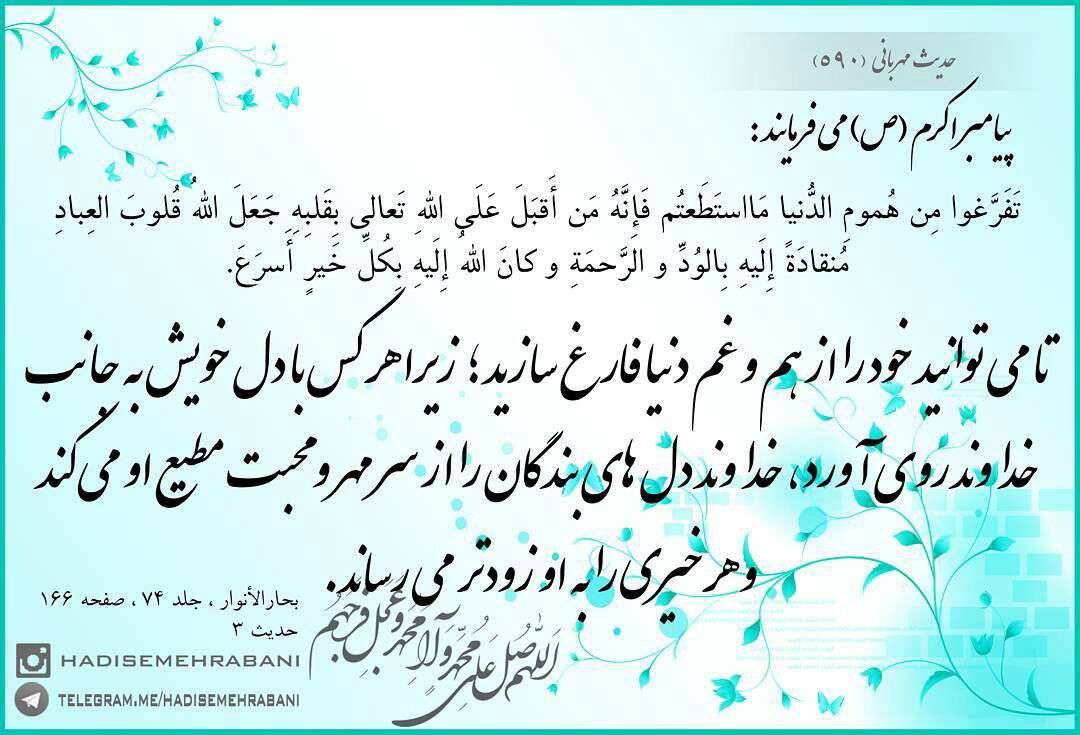 حدیث مهربانی (۵۹۰)
پیامبر اکرم (ص) می فرمایند:
تَفَرَّغوا مِن هُمومِ الدُّنیا مَااستَطَعتُم فَإِنَّهُ مَن أَقبَلَ عَلَی اللهِ تَعالی بِقَلبِهِ جَعَلَ اللهُ قُلوبَ العِبادِ
مُنقادَةً إِلَیهِ بِالوُدِّ و الرَّحمَةِ و کانَ اللهُ إِلَیهِ بِکُلِّ خَیرٍ أَسرَعَ.
تا می توانید خود را از هم و غم دنیا فارغ سازید؛ زیرا هر کس با دل خویش به جانب
خداوند روی آورد، خداوند دل های بندگان را از سر مهر و محبت مطیع او می کند
و هر خیری را به او زودتر می رساند.
بحارالأنوار ، جلد ۷۴ ، صفحه ۱۶۶
حدیث ۳
اَللّهُمَّ صَلِّ عَلی مُحَمَّدٍ وَآلِ مُحَمَّدٍ وَعَجِّل فَرَجَهُم
HADISEMEHRABANI
TELEGRAM.ME/HADISEMEHRABANI